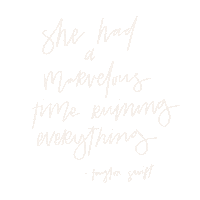 she had
a
marvelous
time ruining
everything
- taylor swift